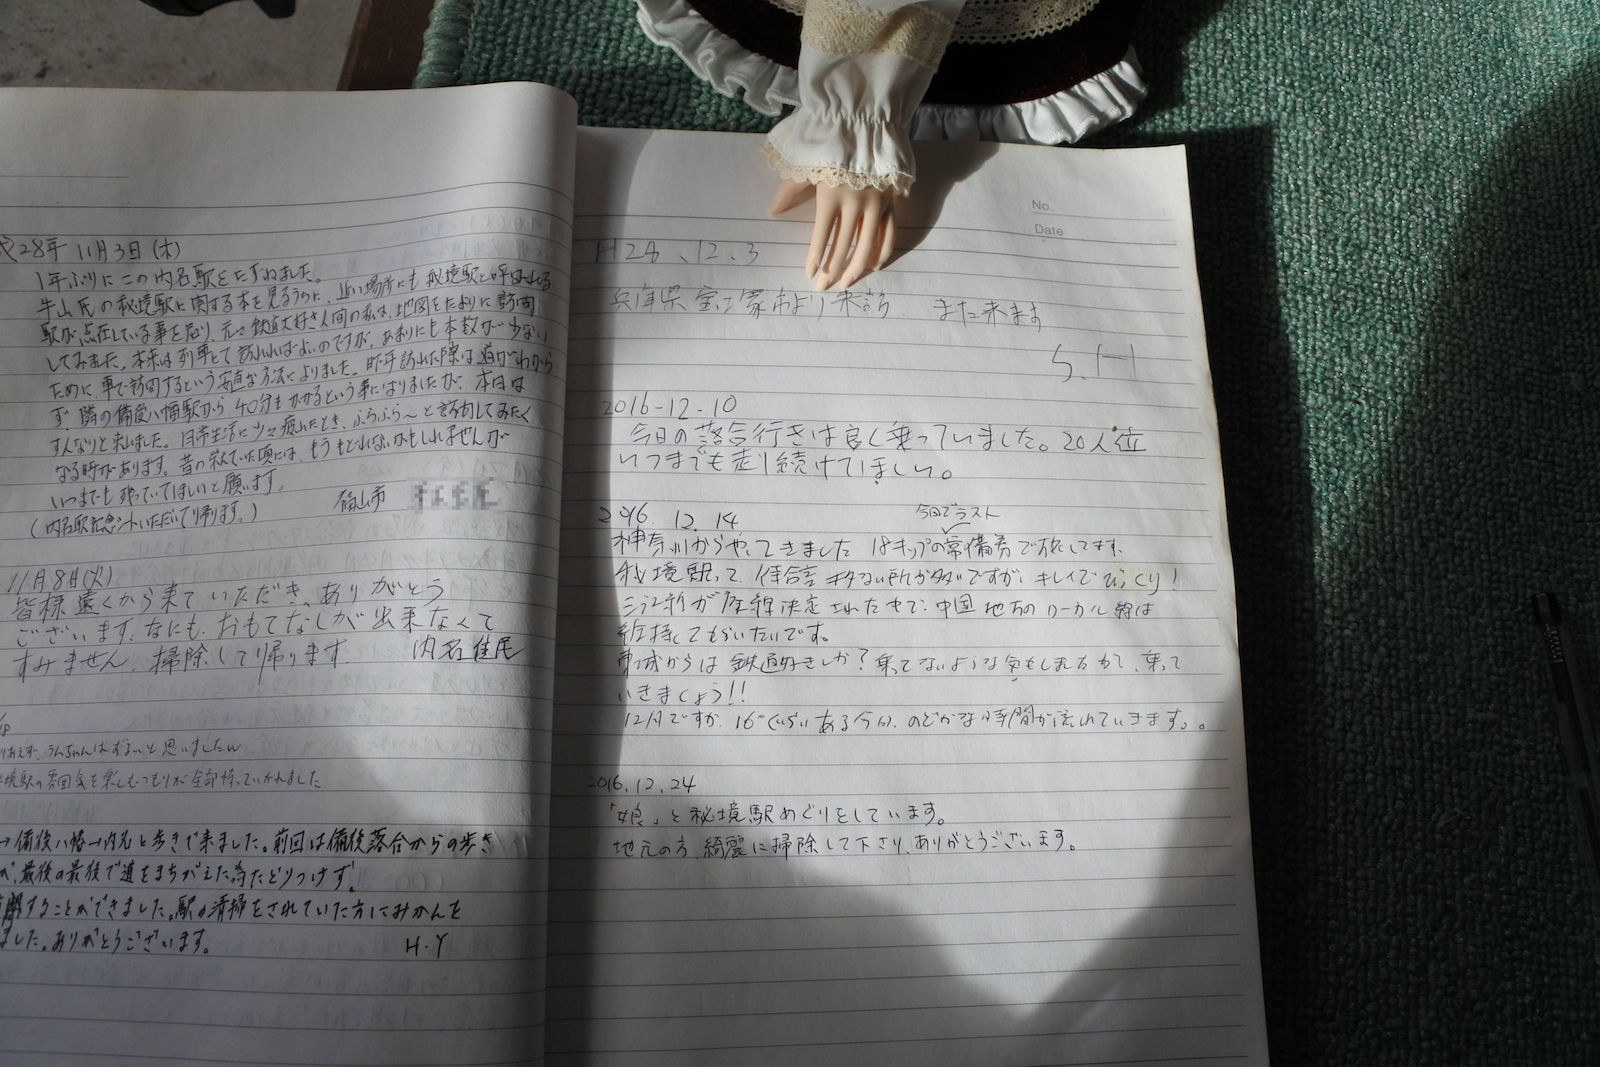 28年 11月3日 (木)
1年ぶりにこの内名駅をたずねました。
牛山氏の秘境駅に関する本を見るうちに、近い場所にも秘境駅と呼ばれる
駅が点在している事を知り、元々鉄道大好き人間の私は、地図をたよりに訪問
してみました。本来は列車にて訪れればよいのですが、あまりにも本数が少ない
ために、車で訪問するという安直な方法によりました。昨年訪れた際は道がわから
ず 隣の備後八幡駅から 40分もかかるという事になりましたが、本日は
すんなりと来れました。日常生活に少々疲れたとき、ふらふら〜と訪問してみたく
なる時があります。昔の栄えていた頃には、もうもどれないかもしれませんが
いつまでも残っていてほしいと願います。
(内名駅記念 いただいて帰ります。)
福山市
11月8日(火)
皆様 遠くから来ていただき、ありがとう
ございます、なにも、おもてなしが出来なくて
すみません、掃除して帰ります。 内名住民
と思いましたw
境駅の雰囲気を楽しむつもりが全部持っていかれました
→備後八幡→内名と歩きで来ました。前回は備後落合からの歩き
が、最後の最後で道をまちがえた為たどりつけず。
することができました。駅の清掃をされていた方にみかんを
ました。ありがとうございます。 H.Y
No.
Date
H28、12、3
兵庫県宝塚市より来訪、 また来ます
S.H
2016-12-10
今日の落合行きは良く乗っていました。20人位
いつまでも走り続けてほしい。
2016. 12. 14
今日でラスト
神奈川からやってきました 18キップの常備券で旅してます。
秘境駅って、待合室 キタない所が多いですが、キレイでびっくり!
三江線が廃線決定されたので、中国地方のローカル線は
維持してもらいたいです。
からは 鉄道好きしか?乗ってないような気もしますが、乗って
いきましょう!!
12月ですが、16°くらいある今日、のどかな時間が流れていきます。。
2016.12.24
「娘」と秘境駅めぐりをしています。
地元の方、綺麗に掃除して下さり、ありがとうございます。